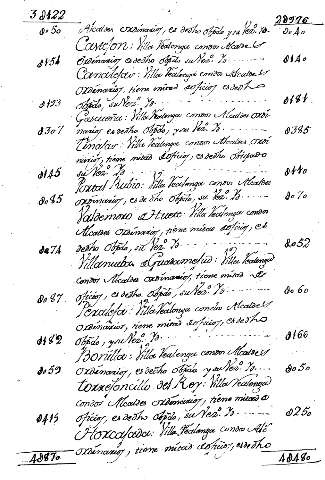 38422 28926
8050 Alcaldes ordinarios, es de dho Obpdo, y su Vezº. Yo 8040
Castejon: Villa Realenga con dos Alcaldes
8154 ordinarios es de dho Obpdo, su Vezº. Yo 8140
Canalejas: Villa Realenga con dos Alcaldes
ordinarios, tiene mitad de oficios es de dho
8193 Obpdo, su Vezº. Yo 8181
Gascueña: Villa Realenga con dos Alcaldes ordi
8307 narios, es de dho Obpdo, y su Vezº. Yo 8385
Tinajas: Villa Realenga con dos Alcaldes ordi
narios, tiene mitad de oficios, es de dho Obispado
8145 su Vezº. Yo 8110
Portal Rubio: Villa Realenga con dos Alcaldes
8085 ordinarios, es de dho Obpdo, su Vezº. Yo 8070
Valdemoro de Huete: Villa Realenga con dos
Alcaldes ordinarios, tiene mitad de oficios, es
8074 de dho Obpdo, su Vezº. Yo 8052
Villanueba de Guadamelud: Villa Realenga
con dos Alcaldes ordinarios, tiene mitad de
8087 oficios, es de dho Obpdo, su Vezº. Yo 8060
Peraleja: Villa Realenga con dos Alcaldes
ordinarios, tiene mitad de oficios, es de dho
8182 Obpdo, y su Vezº. Yo 8166
Bonilla: Villa Realenga con dos Alcaldes
8059 ordinarios, es de dho Obpdo, y su Vezº. Yo 8050
Torrejoncillo del Rey: Villa Realenga
con dos Alcaldes ordinarios, tiene mitad de
8415 oficios, es de dho Obpdo, su Vezº. Yo 8250
Horcajada: Villa Realenga con dos Alcdes
ordinarios, tiene mitad de oficios, es de dho
48870 48480